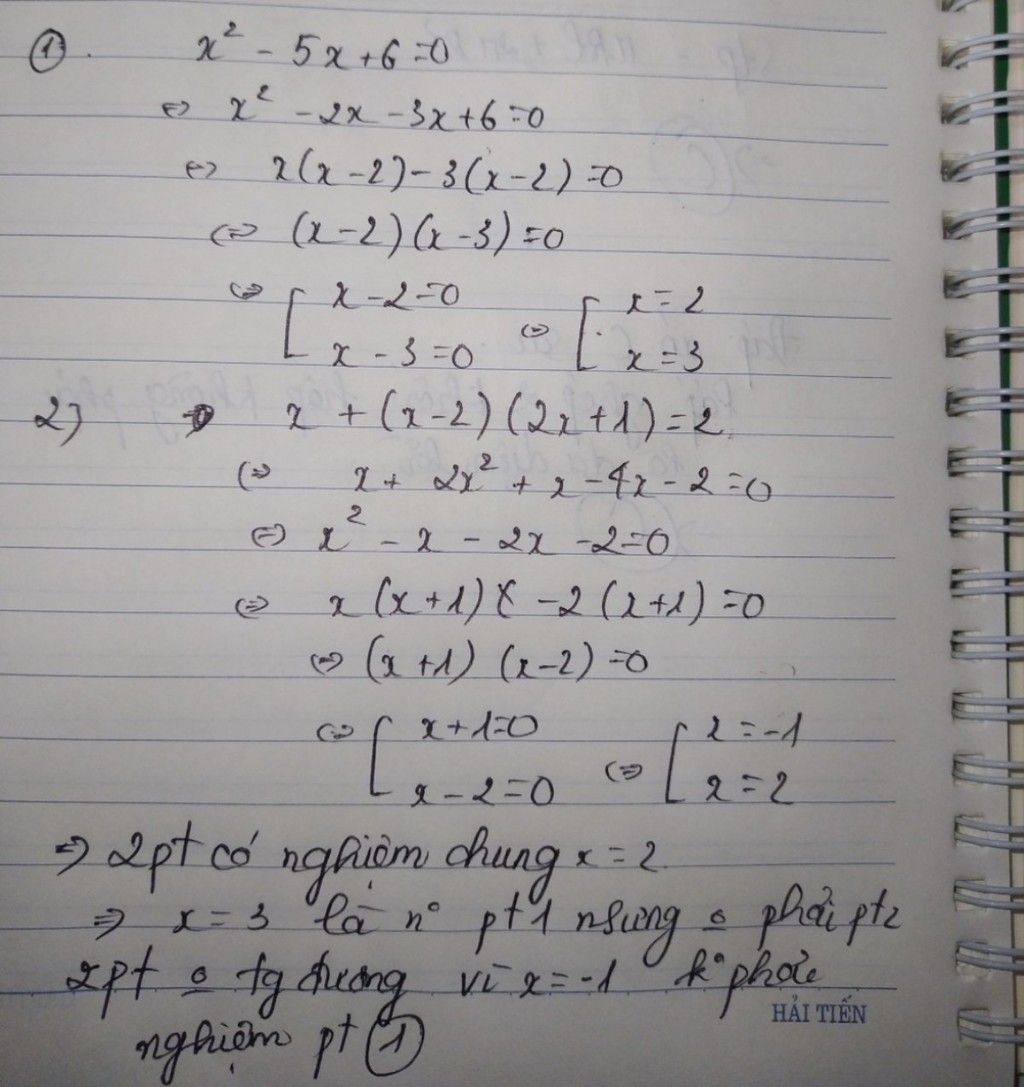 ① x² - 5x + 6 = 0
⇔ x² - 2x - 3x + 6 = 0
⇔ x(x - 2) - 3(x - 2) = 0
⇔ (x - 2)(x - 3) = 0
⇔ [ x - 2 = 0 ⇔ [ x = 2
x - 3 = 0 x = 3
2) x + (x - 2)(2x + 1) = 2
⇔ x + 2x² + x - 4x - 2 = 0
⇔ x² - x - 2x - 2 = 0
⇔ x(x + 1) - 2(x + 1) = 0
⇔ (x + 1)(x - 2) = 0
⇔ [ x + 1 = 0 ⇔ [ x = -1
x - 2 = 0 x = 2
⇒ 2pt có nghiệm chung x = 2.
⇒ x = 3 là n° pt 1 nhưng o phải pt2
2pt o tg đương vì x = -1 k° phải
HẢI TIẾN
nghiệm pt ①